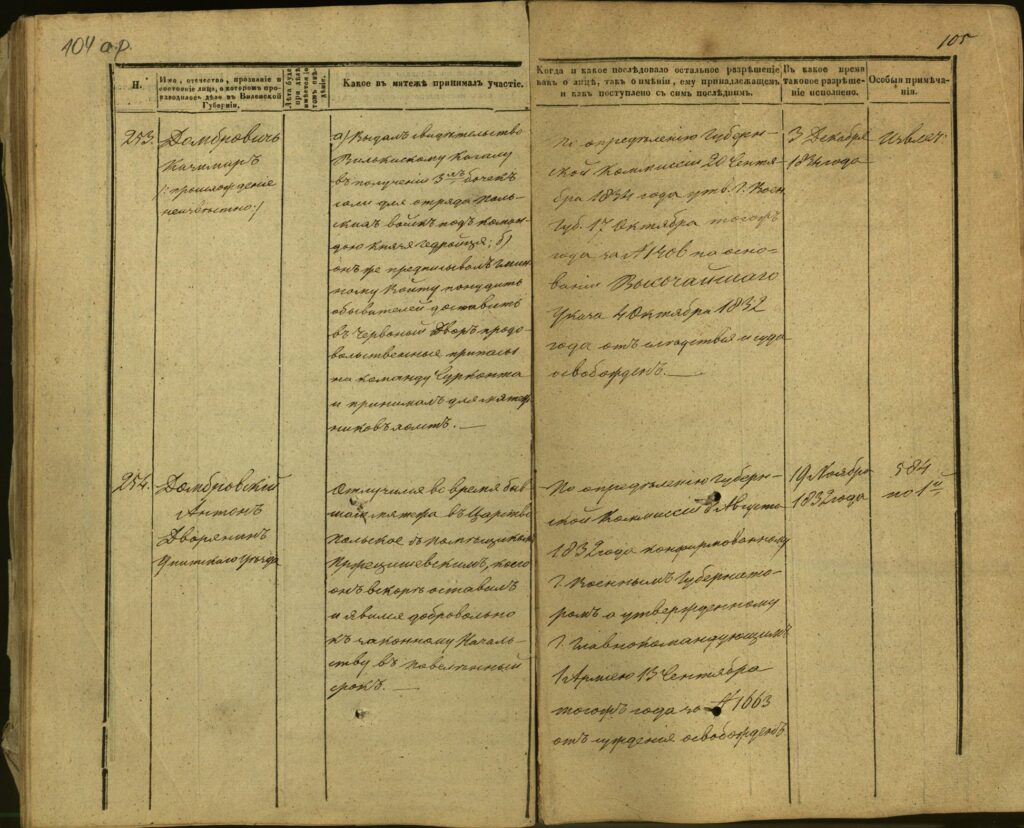 104 а.р.
105
Н.
Имя, отечество, прозваніе и
состояніе лица, о которомъ про-
изводилось дѣло въ Виленской
Губерніи.
Какое въ мятежѣ принималъ участіе.
Когда и какое послѣдовало остальное разрѣшеніе
какъ о лицѣ, такъ о имѣніи, ему принадлежащемъ,
и какъ поступлено съ симъ послѣднимъ.
Въ какое время
таковое разрѣше-
ніе исполнено.
Особыя примѣча-
нія.
253.
Домбровичъ
Казимиръ
/: происхожденіе
неизвѣстно :/
а) Выдалъ свидѣтельство
Вилкискому Кагалу
въ полученіи 3хъ бочекъ
соли для отряда Поль-
скихъ войскъ подъ коман-
дою Князя Гедройця; б)
онъ же предписывалъ Гмин-
ному Войту понудить
обывателей доставить
въ Червоный Дворъ продо-
вольственные припасы
на команду Сурконта
и принималъ для мятеж-
никовъ
По опредѣленію Губерн-
ской Коммиссіи 20 Сентя-
бря 1834 года утв. Г. Воен.
Губ. 17 Октября тогожъ
года за № 1406 на осно-
ваніи Высочайшаго
Указа 4 Октября 1832
года отъ слѣдствія и суда
освобожденъ.
3 Декабря
1834 года
254.
Домбровскій
Антонъ
Дворянинъ
Упитскаго Уѣзда
Отлучился во время быв-
шаго мятежа въ Царство
Польское съ Помѣщикомъ
коего
онъ вскорѣ оставилъ
и явился добровольно
къ законному Началь-
ству въ повелѣнный
срокъ.
По опредѣленію Губерн-
ской Коммиссіи 8 Августа
1832 года конфирмованному
Г. Военнымъ Губернато-
ромъ и утвержденному
Г. Главнокомандующимъ
1 Арміею 13 Сентября
тогожъ года за № 1663
отъ сужденія освобожденъ
19 Ноября
1832 года
584
по 1й